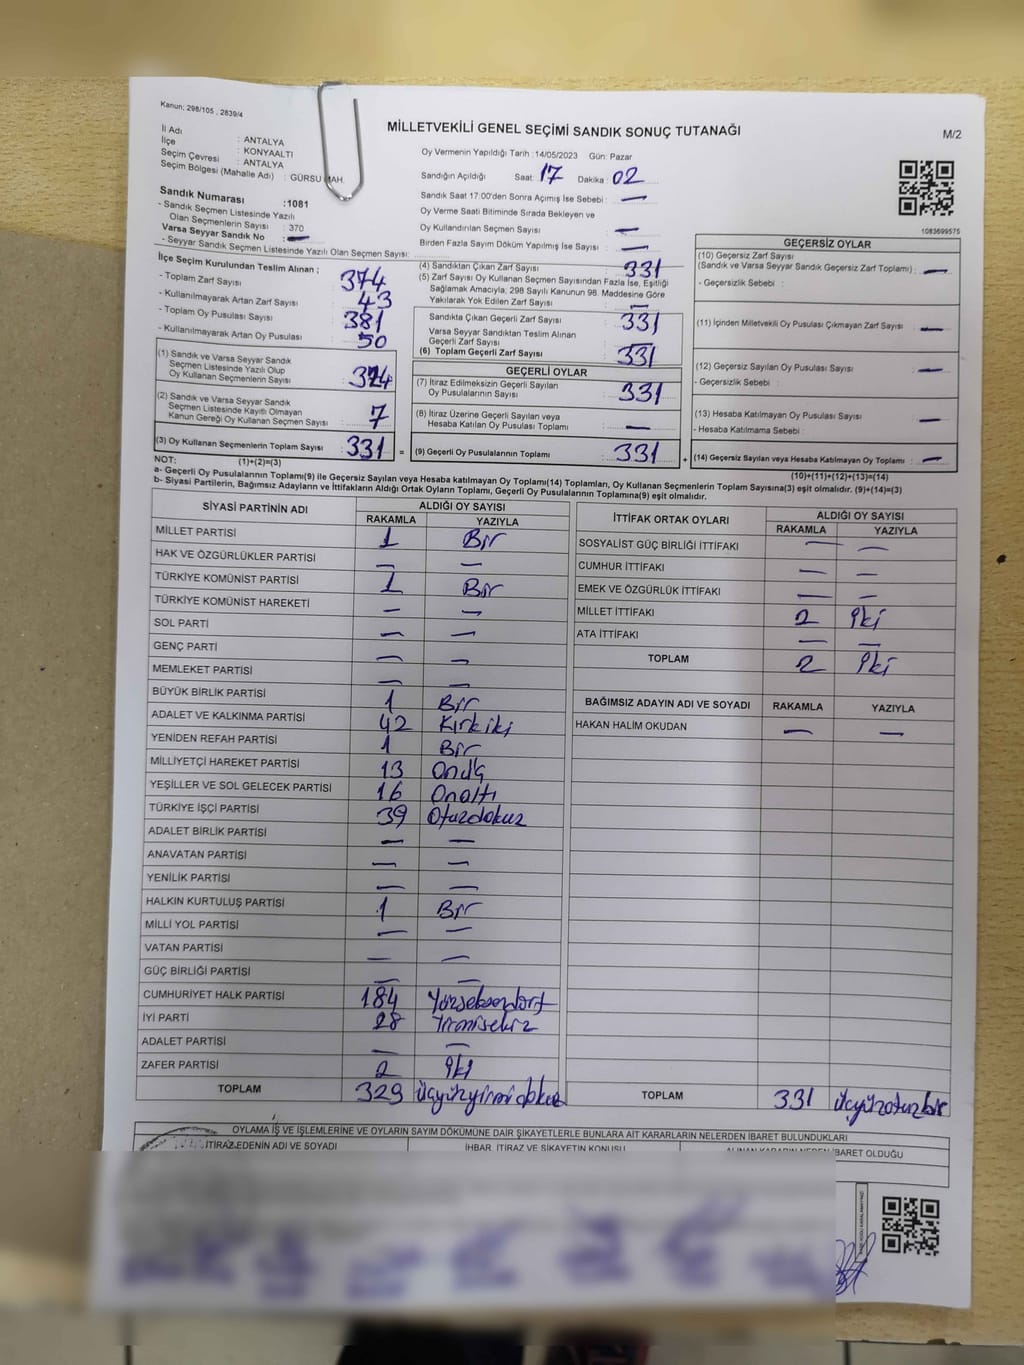 Kanun; 298/105 , 2839/4
MİLLETVEKİLİ GENEL SEÇİMİ SANDIK SONUÇ TUTANAĞI
M/2
İl Adı : ANTALYA
İlçe : KONYAALTI
Seçim Çevresi : ANTALYA
Seçim Bölgesi (Mahalle Adı) : GÜRSU MAH.
Oy Vermenin Yapıldığı Tarih :14/05/2023 Gün: Pazar
Sandığın Açıldığı Saat: 17 Dakika : 02
Sandık Saat 17:00'den Sonra Açımış İse Sebebi : —
Oy Verme Saati Bitiminde Sırada Bekleyen ve
Oy Kullandırılan Seçmen Sayısı : —
Birden Fazla Sayım Döküm Yapılmış İse Sayısı : —
1083699575
Sandık Numarası :1081
- Sandık Seçmen Listesinde Yazılı
Olan Seçmenlerin Sayısı : 370
Varsa Seyyar Sandık No : —
- Seyyar Sandık Seçmen Listesinde Yazılı Olan Seçmen Sayısı:
İlçe Seçim Kurulundan Teslim Alınan ;
- Toplam Zarf Sayısı : 374
- Kullanılmayarak Artan Zarf Sayısı : 43
- Toplam Oy Pusulası Sayısı : 381
- Kullanılmayarak Artan Oy Pusulası : 50
(1) Sandık ve Varsa Seyyar Sandık
Seçmen Listesinde Yazılı Olup
Oy Kullanan Seçmenlerin Sayısı : 324
(2) Sandık ve Varsa Seyyar Sandık
Seçmen Listesinde Kayıtlı Olmayan
Kanun Gereği Oy Kullanan Seçmen Sayısı : 7
(3) Oy Kullanan Seçmenlerin Toplam Sayısı : 331
(4) Sandıktan Çıkan Zarf Sayısı : 331
(5) Zarf Sayısı Oy Kullanan Seçmen Sayısından Fazla İse, Eşitliği
Sağlamak Amacıyla, 298 Sayılı Kanunun 98. Maddesine Göre
Yakılarak Yok Edilen Zarf Sayısı : —
Sandıkta Çıkan Geçerli Zarf Sayısı : 331
Varsa Seyyar Sandıktan Teslim Alınan
Geçerli Zarf Sayısı : —
(6) Toplam Geçerli Zarf Sayısı : 331
GEÇERLİ OYLAR
(7) İtiraz Edilmeksizin Geçerli Sayılan
Oy Pusulalarının Sayısı : 331
(8) İtiraz Üzerine Geçerli Sayılan veya
Hesaba Katılan Oy Pusulası Toplamı : —
= (9) Geçerli Oy Pusulalarının Toplamı : 331
GEÇERSİZ OYLAR
(10) Geçersiz Zarf Sayısı
(Sandık ve Varsa Seyyar Sandık Geçersiz Zarf Toplamı) : —
- Geçersizlik Sebebi :
(11) İçinden Milletvekili Oy Pusulası Çıkmayan Zarf Sayısı : —
(12) Geçersiz Sayılan Oy Pusulası Sayısı : —
- Geçersizlik Sebebi :
(13) Hesaba Katılmayan Oy Pusulası Sayısı : —
- Hesaba Katılmama Sebebi :
+ (14) Geçersiz Sayılan veya Hesaba Katılmayan Oy Toplamı : —
NOT: (1)+(2)=(3)
(10)+(11)+(12)+(13)=(14)
a- Geçerli Oy Pusulalarının Toplamı(9) ile Geçersiz Sayılan veya Hesaba katılmayan Oy Toplamı(14) Toplamları, Oy Kullanan Seçmenlerin Toplam Sayısına(3) eşit olmalıdır. (9)+(14)=(3)
b- Siyasi Partilerin, Bağımsız Adayların ve İttifakların Aldığı Ortak Oyların Toplamı, Geçerli Oy Pusulalarının Toplamına(9) eşit olmalıdır.
SİYASİ PARTİNİN ADI ALDIĞI OY SAYISI
RAKAMLA YAZIYLA
MİLLET PARTİSİ 1 Bir
HAK VE ÖZGÜRLÜKLER PARTİSİ — —
TÜRKİYE KOMÜNİST PARTİSİ 1 Bir
TÜRKİYE KOMÜNİST HAREKETİ — —
SOL PARTİ — —
GENÇ PARTİ — —
MEMLEKET PARTİSİ — —
BÜYÜK BİRLİK PARTİSİ 1 Bir
ADALET VE KALKINMA PARTİSİ 42 Kırkiki
YENİDEN REFAH PARTİSİ 1 Bir
MİLLİYETÇİ HAREKET PARTİSİ 13 Onüç
YEŞİLLER VE SOL GELECEK PARTİSİ 16 Onaltı
TÜRKİYE İŞÇİ PARTİSİ 39 Otuzdokuz
ADALET BİRLİK PARTİSİ — —
ANAVATAN PARTİSİ — —
YENİLİK PARTİSİ — —
HALKIN KURTULUŞ PARTİSİ 1 Bir
MİLLİ YOL PARTİSİ — —
VATAN PARTİSİ — —
GÜÇ BİRLİĞİ PARTİSİ — —
CUMHURİYET HALK PARTİSİ 184 Yüzseksendört
İYİ PARTİ 28 Yirmisekiz
ADALET PARTİSİ — —
ZAFER PARTİSİ 2 İki
TOPLAM 329 üçyüzyirmidokuz
İTTİFAK ORTAK OYLARI ALDIĞI OY SAYISI
RAKAMLA YAZIYLA
SOSYALİST GÜÇ BİRLİĞİ İTTİFAKI — —
CUMHUR İTTİFAKI — —
EMEK VE ÖZGÜRLÜK İTTİFAKI — —
MİLLET İTTİFAKI 2 İki
ATA İTTİFAKI — —
TOPLAM 2 İki
BAĞIMSIZ ADAYIN ADI VE SOYADI RAKAMLA YAZIYLA
HAKAN HALİM OKUDAN — —
TOPLAM 331 üçyüzotuzbir
OYLAMA İŞ VE İŞLEMLERİNE VE OYLARIN SAYIM DÖKÜMÜNE DAİR ŞİKAYETLERLE BUNLARA AİT KARARLARIN NELERDEN İBARET BULUNDUKLARI
İTİRAZ EDENİN ADI VE SOYADI İHBAR, İTİRAZ VE ŞİKAYETİN KONUSU ALINAN KARARIN NEDEN İBARET OLDUĞU